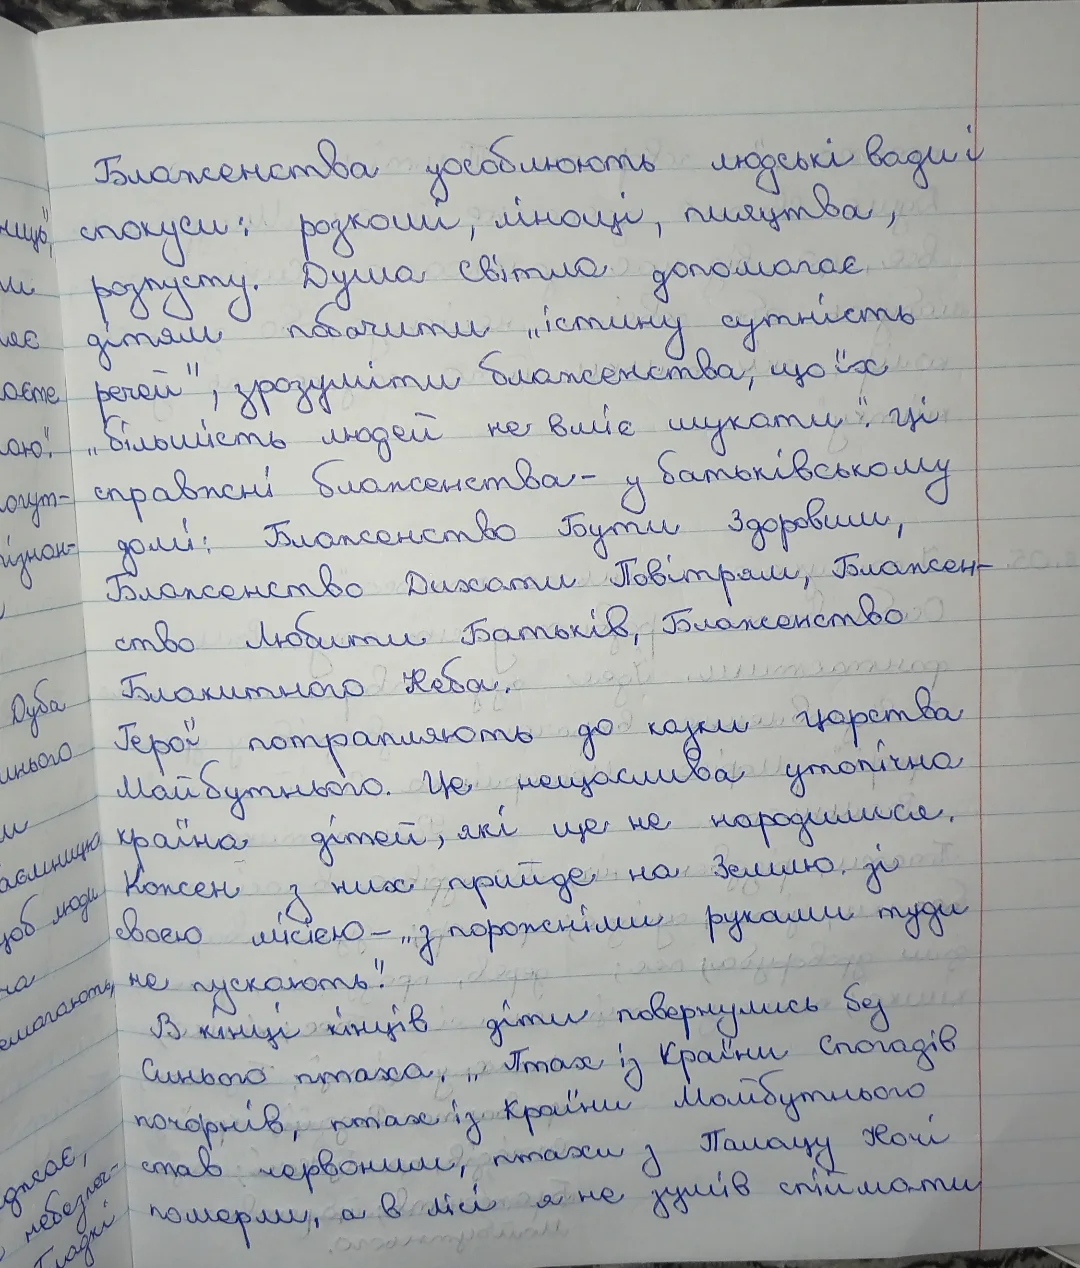 Блаженства уособлюють людські вади і
спокуси: розкоші, лінощі, пияцтва,
розпусту. Душа світла допомагає
дітям побачити „істину сутність
речей", зрозуміти блаженства, що їх
„більшість людей не вміє шукати". Ці
справжні блаженства - у батьківському
домі: Блаженство Бути Здоровим,
Блаженство Дихати Повітрям, Блажен-
ство Любити Батьків, Блаженство
Блакитного Неба.
Герої потрапляють до казки царства
Майбутнього. Це нещаслива утопічна
країна дітей, які ще не народилися.
Кожен з них прийде на Землю зі
своєю місією - „з порожніми руками туди
не пускають".
В кінці кінців діти повернулись без
Синього птаха. „Птах із Країни Спогадів
почорнів, птах із Країни Майбутнього
став червоним, птахи з Палацу Ночі
померли, а в лісі я не зумів спіймати
нищо",
ає
аєте
аю".
огут-
ізнан-
Дуба
инього
аємницю
щоб люди
на
емагають,
джає,
небезпеч-
Гладкі